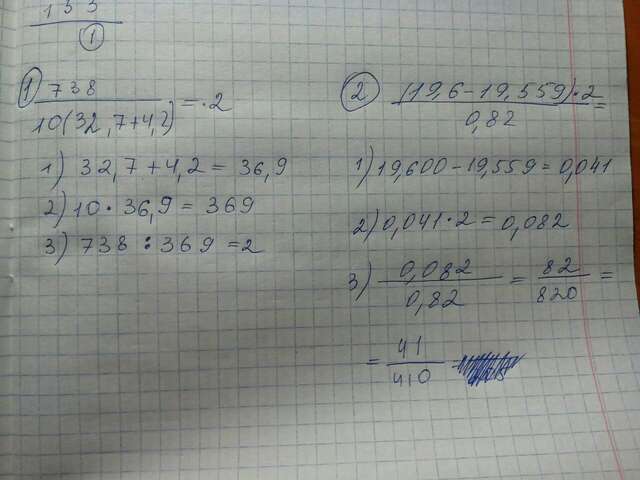 133
1
1) 738 / 10(32,7+4,2) = ·2
1) 32,7 + 4,2 = 36,9
2) 10 · 36,9 = 369
3) 738 : 369 = 2
2 (19,6 - 19,559)·2 / 0,82 =
1) 19,600 - 19,559 = 0,041
2) 0,041 · 2 = 0,082
3) 0,082 / 0,82 = 82 / 820 =
= 41 / 410